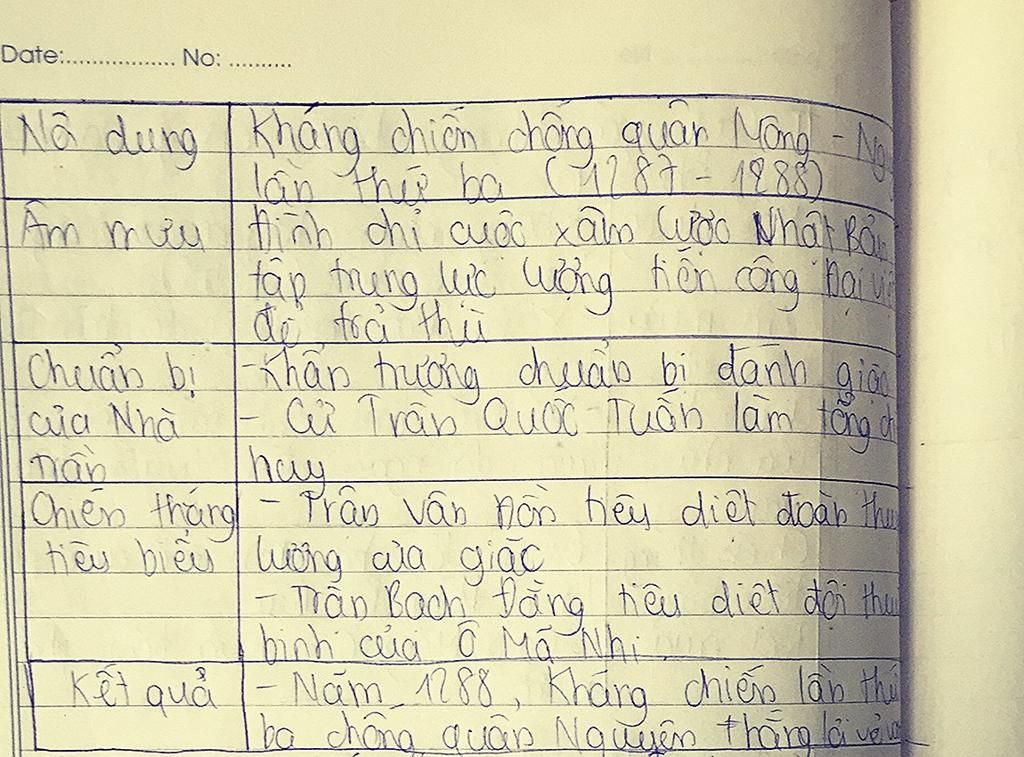 Date:................. No: ..........
Nô dung
Kháng chiến chống quân Mông - Ng
lần thứ ba (1287 - 1288)
Âm mưu
Đình chỉ cuộc xâm lược Nhật Bản
tập trung lực lượng tiến công Đại Việ
để trả thù
Chuẩn bị
của Nhà
Trần
- Khẩn trương chuẩn bị đánh giặc
- Cử Trần Quốc Tuấn làm tổng ch
huy
Chiến thắng
tiêu biểu
- Trận Vân Đồn tiêu diệt đoàn thu
lương của giặc
- Trận Bạch Đằng tiêu diệt đội thu
binh của Ô Mã Nhi.
Kết quả
- Năm 1288, Kháng chiến lần thứ
ba chống quân Nguyên thắng lợi vẻ va